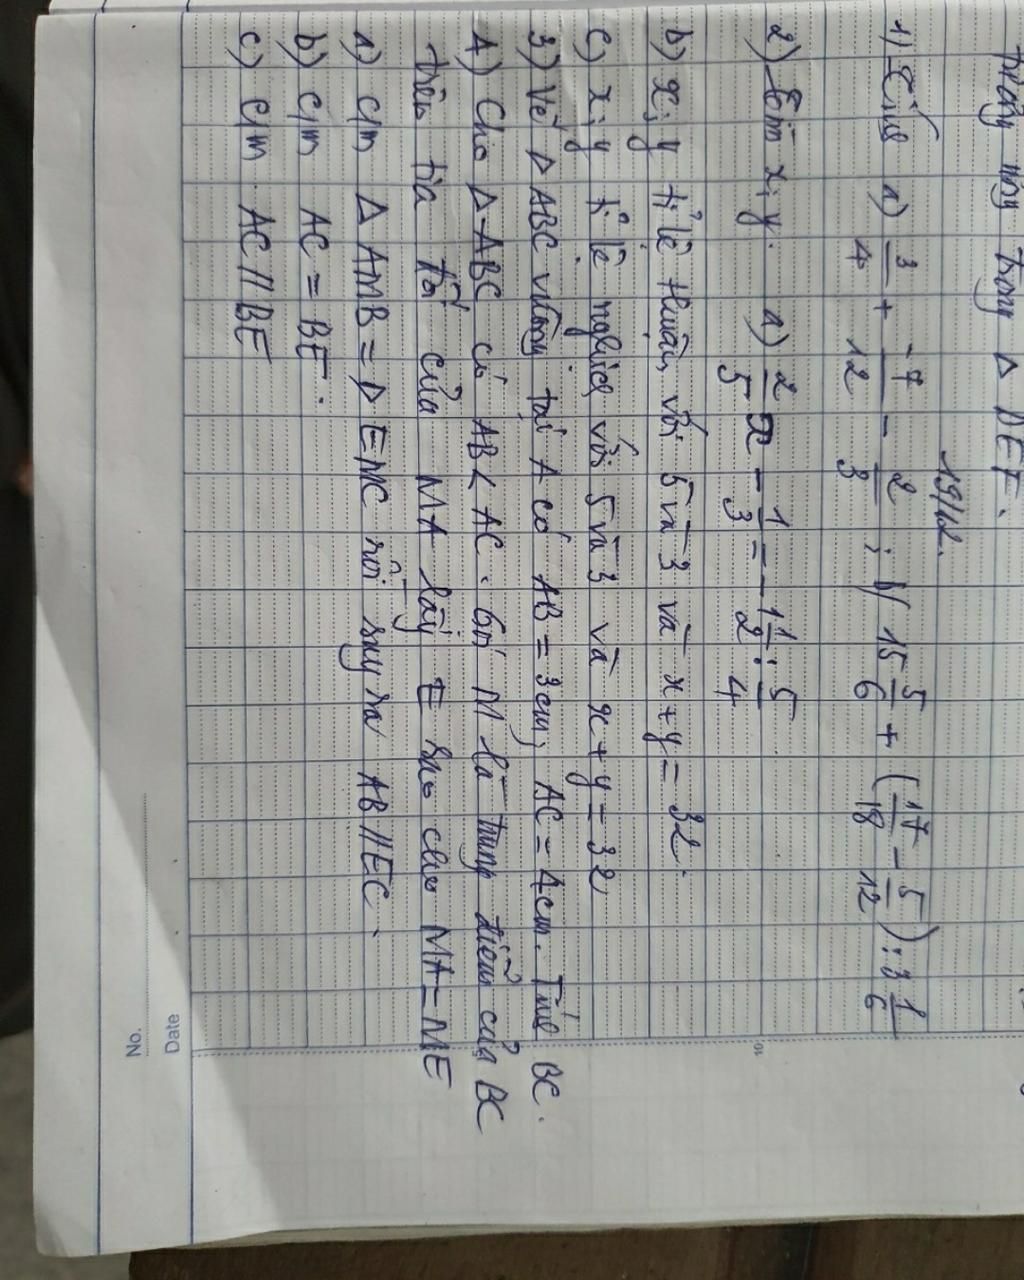 trong Δ DEF.
19/12.
1) Tính a) 3/4 + -7/12 - 2/3 ; b) 15 5/6 + (17/18 - 5/12) : 3 1/6
2) Tìm x, y. a) 2/5 x - 1/3 = -1 1/2 : 5/4
b) x, y tỉ lệ thuận với 5 và 3 và x + y = 32.
c) x, y tỉ lệ nghịch với 5 và 3 và x + y = 32
3) Vẽ Δ ABC vuông tại A có AB = 3cm, AC = 4cm. Tính BC.
4) Cho Δ ABC có AB < AC. Gọi M là trung điểm của BC
trên tia đối của MA lấy E sao cho MA = ME
a) C/m Δ AMB = Δ EMC rồi suy ra AB // EC.
b) C/m AC = BE.
c) C/m AC // BE
No.
Date